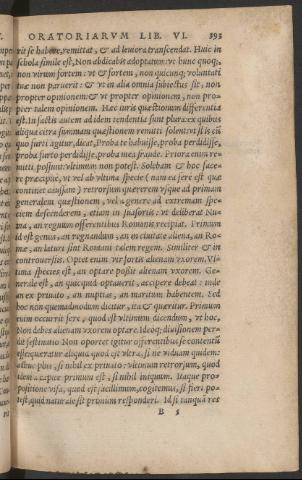 ORATORIARVM LIB. VI. 393
rit se habere, remittat, & ad leuiora transcendat. Huic in
schola simile est, Non abdicabis adoptatum: vt hunc quoq;,
non virum fortem: vt & fortem, non quicunq; voluntati
tuæ non paruerit: & vt in alia omnia subiectus sit, non
propter opinionem: & vt propter opinionem, non pro-
pter talem opinionem. Hæc iuris quæstionum differentia
est. In factis autem ad idem tendentia sunt plura: ex quibus
aliqua citra summam quæstionem remitti solent: vt si is cū
quo furti agitur, dicat, Proba te habuisse, proba perdidisse,
proba furto perdidisse, proba mea fraude. Priora enim re-
mitti, possunt: vltimum non potest. Solebam & hoc face
re præcipiē, vt vel ab vltima specie (nam ea ferè est quæ
continet caussam) retrorsum quærerem vsque ad primam
generalem quæstionem, vel à genere ad extremam spe-
ciem descenderem, etiam in suasoriis: vt deliberat Nu-
ma, an regnum offerentibus Romanis recipiat. Primum
id est genus, an regnandum: an in ciuitate aliena, an Ro-
mæ, an laturi sint Romani talem regem. Similiter & in
controuersiis. Optet enim vir fortis alienam vxorem. Vl-
tima species est, an optare possit alienam vxorem. Ge-
nerale est, an quicquid optauerit, accipere debeat: inde
an ex priuato, an nuptias, an maritum habentem. Sed
hoc non quemadmodum dicitur, ita & quæritur. Primum
enim occurrit ferè, quod est vltimum dicendum, vt hoc,
Non debes alienam vxorem optare. Ideoq; diuisionem per-
dit festinatio. Non oportet igitur offerentibus se contentū
esse: quæratur aliquid quod est vltra, si ne viduam quidem:
adhuc plus, si nihil ex priuato: vltimum retrorsum, quod
idem à capite primum est, si nihil iniquum. Itaque pro-
positione visa, quod est facillimum, cogitemus, si fieri po-
test, quid naturale sit primum responderi. Id si tanquā res
B 5